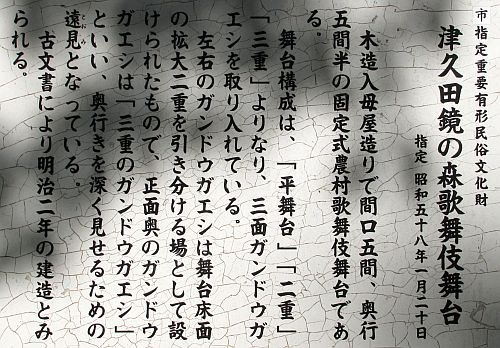 市指定重要有形民俗文化財
津久田鏡の森歌舞伎舞台
指定 昭和五十八年一月二十日
木造入母屋造りで間口五間、奥行
五間半の固定式農村歌舞伎舞台であ
る。
舞台構成は、「平舞台」「二重」
「三重」よりなり、三面ガンドウガ
エシを取り入れている。
左右のガンドウガエシは舞台床面
の拡大二重を引き分ける場として設
けられたもので、正面奥のガンドウ
ガエシは「三重のガンドウガエシ」
といい、奥行きを深く見せるための
遠見となっている。
古文書により明治二年の建造とみ
られる。